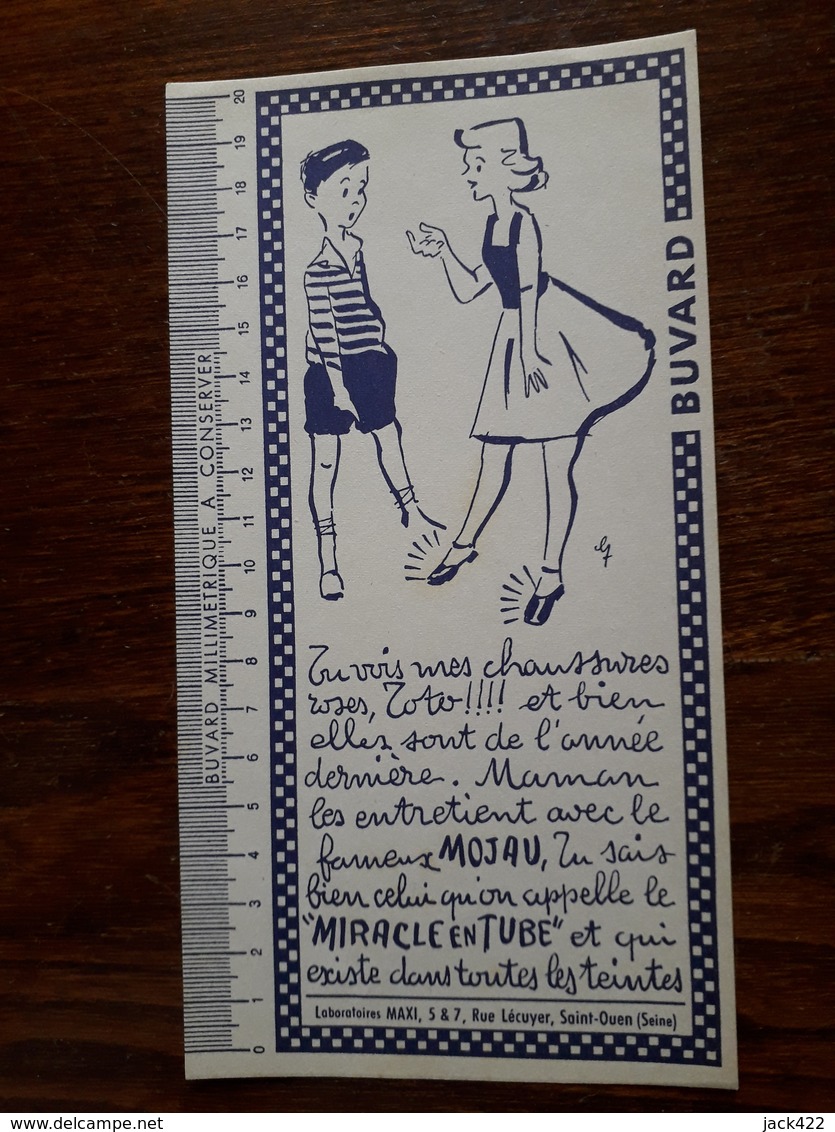 BUVARD MILLIMETRIQUE A CONSERVER
20
19
18
17
16
15
14
13
12
11
10
9
8
7
6
5
4
3
2
1
0
BUVARD
Tu vois mes chaussures
roses, Toto!!!! et bien
elles sont de l'année
dernière. Maman
les entretient avec le
fameux MOJAU, Tu sais
bien celui qu'on appelle le
"MIRACLE EN TUBE" et qui
existe dans toutes les teintes
Laboratoires MAXI, 5 & 7, Rue Lécuyer, Saint-Ouen (Seine)
jack422